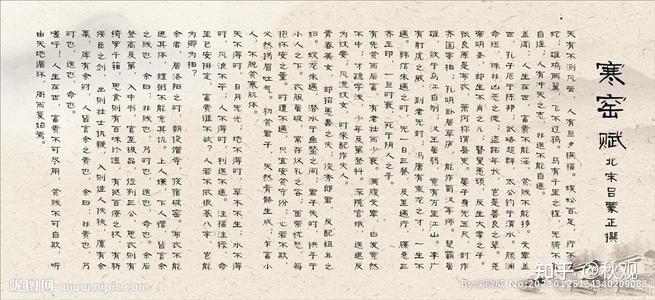 寒窑赋 北宋吕蒙正撰
天有不测风云，人有旦夕祸福。蜈蚣百足，行不及
蛇；雄鸡两翼，飞不过鸦。马有千里之程，无骑不能
自往；人有冲天之志，非运不能自通。
盖闻：人生在世，富贵不能淫，贫贱不能移。文章盖
世，孔子厄于陈邦；武略超群，太公钓于渭水。颜渊
命短，殊非凶恶之徒；盗跖年长，岂是善良之辈。尧
帝明圣，却生不肖之儿；瞽叟愚顽，反生大孝之子。
张良原是布衣，萧何称谓县吏。晏子身无五尺，封作
齐国宰相；孔明卧居草庐，能作蜀汉军师。楚霸虽
雄，败于乌江自刎；汉王虽弱，竟有万里江山。李广
有射虎之威，到老无封；冯唐有乘龙之才，一生不
遇。韩信未遇之时，无一日三餐，及至遇行，腰悬三
齐玉印，一旦时衰，死于阴人之手。
有先贫而后富，有老壮而少衰。满腹文章，白发竟然
不中；才疏学浅，少年及第登科。深院宫娥，运退反
为妓妾；风流妓女，时来配作夫人。
青春美女，却招愚蠢之夫；俊秀郎君，反配粗丑之
妇。蛟龙未遇，潜水于鱼鳖之间；君子失时，拱手于
小人之下。衣服虽破，常存仪礼之容；面带忧愁，每
抱怀安之量。时遭不遇，只宜安贫守份；心若不欺，必
然扬眉吐气。初贫君子，天然骨骼生成；乍富小
人，不脱贫寒肌体。
天不得时，日月无光；地不得时，草木不生；水不得
时，风浪不平；人不得时，利运不通。注福注禄，命
里已安排定，富贵谁不欲？人若不依根基八字，岂能
为卿为相？
余者，居洛阳之时，朝投僧寺，夜宿破窑，布衣不能
遮其体，饘粥不能充其饥，上人嫌，下人憎，皆言余
之贱也。余曰：非贱也，乃时也，运也，命也。余后
登高及第，入中书，官至极品，位列三公，思衣则有
绮罗千箱，思食则有百味珍馐，有挞百僚之杖，有斩
鄙吝之剑，出则壮士执鞭，入则佳人扶袂，廪有余
粟，库有余财，人皆言余之贵也。余曰：非贵也，乃
时也，运也，命也。
嗟呼！人生在世，富贵不可尽用，贫贱不可自欺，听
由天地循环，周而复始焉。
昵图网 www.nipic.com
知乎 @秋观